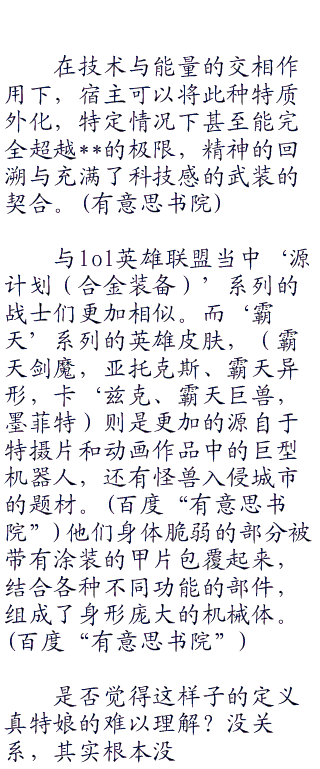 在技术与能量的交相作
用下，宿主可以将此种特质
外化，特定情况下甚至能完
全超越**的极限，精神的回
溯与充满了科技感的武装的
契合。(有意思书院)
与lol英雄联盟当中‘源
计划（合金装备）’系列的
战士们更加相似。而‘霸
天’系列的英雄皮肤，（霸
天剑魔，亚托克斯、霸天异
形，卡‘兹克、霸天巨兽，
墨菲特）则是更加的源自于
特摄片和动画作品中的巨型
机器人，还有怪兽入侵城市
的题材。(百度“有意思书
院”)他们身体脆弱的部分被
带有涂装的甲片包覆起来，
结合各种不同功能的部件，
组成了身形庞大的机械体。
(百度“有意思书院”)
是否觉得这样子的定义
真特娘的难以理解？没关
系，其实根本没